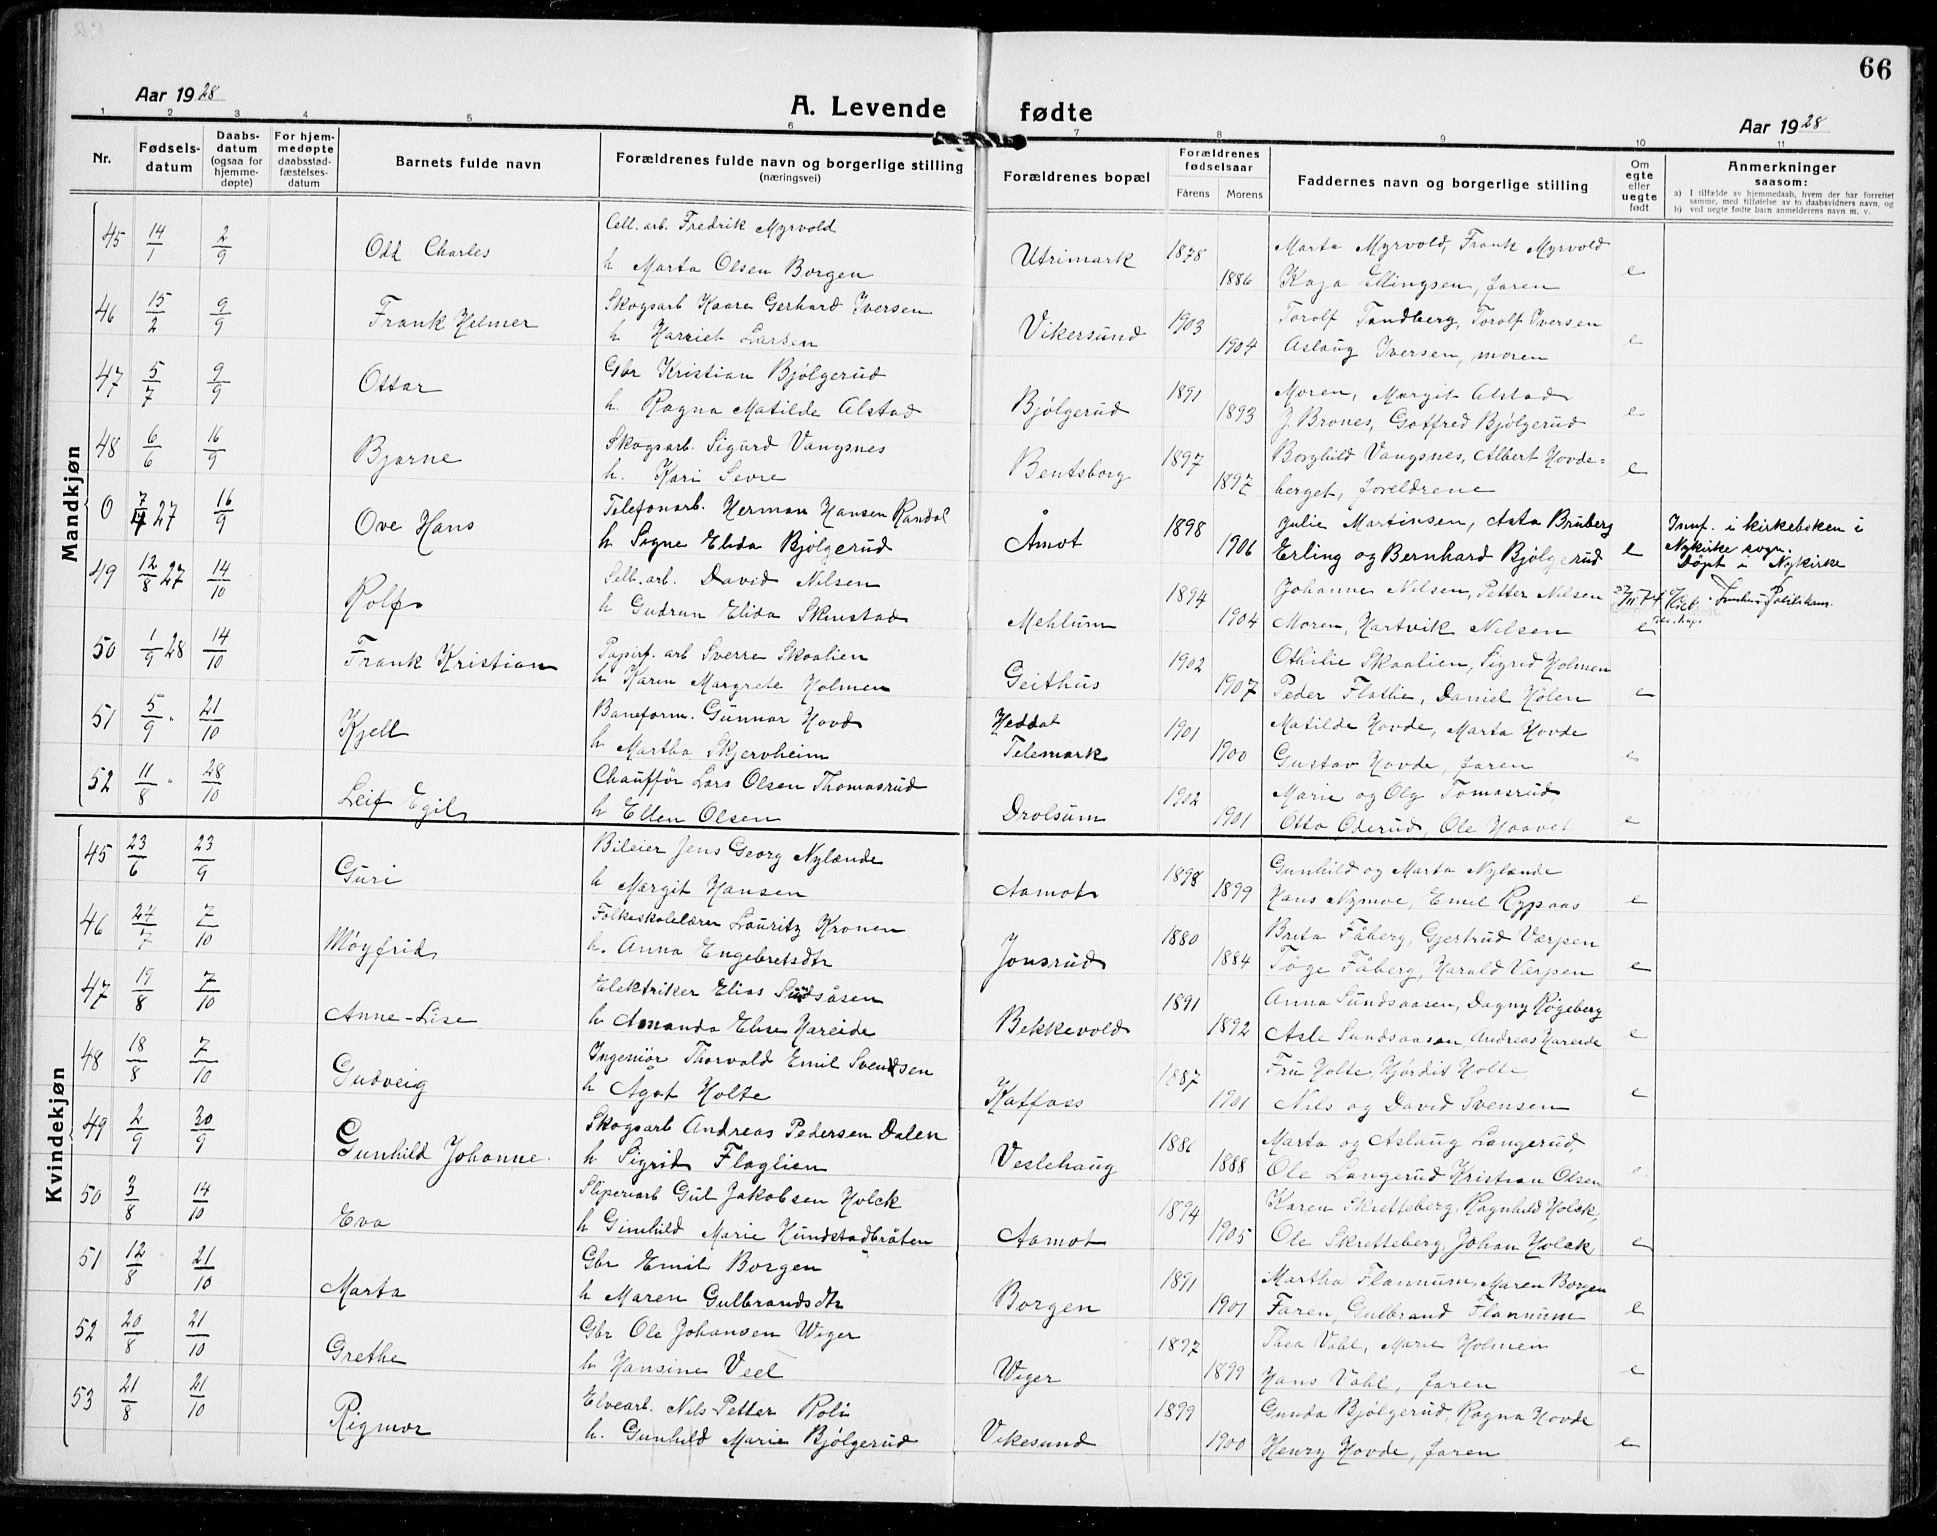 66
Aar 1928
A. Levende fødte
Aar 1928
1 2 3 4 5 6 7 8 9 10 11
Nr.
Fødsels-
datum
Daabs-
datum
(ogsaa for
hjemme-
døpte)
For hjem-
medøpte
daabsstad-
fæstelses-
datum
Barnets fulde navn
Forældrenes fulde navn og borgerlige stilling
(næringsvei)
Forældrenes bopæl
Forældrenes
fødselsaar
Farens Morens
Faddernes navn og borgerlige stilling
Om
egte
eller
uegte
født
Anmerkninger
saasom:
a) I tilfælde av hjemmedaab, hvem der har forrettet
samme, med tilføielse av to daabsvidners navn, og
b) ved uegte fødte barn anmelderens navn m. v.
Mandkjøn
45 14/1 2/9 Odd Charles
Cell. arb. Fredrik Myrvold
h Marta Olsen Borgen
Utrimark 1878 1886
Marta Myrvold, Frank Myrvold
Kaja Ellingsen, faren e
46 15/2 9/9 Frank Helmer
Skogsarb Kaare Gerhard Iversen
h Harriet Larsen
Vikersund 1903 1904
Torolf Tandberg, Torolf Iversen
Aslaug Iversen, moren e
47 5/7 9/9 Ottar
Gbr Kristian Bjølgerud
h. Ragna Matilde Alstad
Bjølgerud 1891 1893
Moren, Margit Alstad
J. Brones, Gotfred Bjølgerud e
48 6/6 16/9 Bjarne
Skogsarb. Sigurd Vangsnes
h. Kari Sevre
Bentsborg 1897 1897
Borghild Vangsnes, Albert Hovde=
berget, foreldrene e
0 27 16/9 Ove Hans
Telefonarb. Herman Hansen Randal
h Signe Elida Bjølgerud
Åmot 1898 1906
Julie Martinsen, Asta Bruberg
Erling og Bernhard Bjølgerud e
Innf. i kirkeboken i
Nykirke sogn.
Døpt i Nykirke
49 12/8 27 14/10 Rolf
Sell. arb. David Nilsen
h Gudrun Elida Skinstad
Mehlum 1894 1904
Johanne Nilsen, Petter Nilsen
Moren, Hartvik Nilsen e
50 1/9 28 14/10 Frank Kristian
Papirf. arb Sverre Skaalien
h Karen Margrete Holmen
Geithus 1902 1907
Othilie Skaalien, Sigrid Holmen
Peder Flathe, Daniel Holen e
51 5/9 " 21/10 Kjell
Baneform. Gunnar Hovde
h Martha Skjervheim
Heddal
Telemark 1901 1900
Matilde Hovde, Marta Hovde
Gustav Hovde, faren e
52 11/8 " 28/10 Leif Egil
Chauffør Lars Olsen Thomasrud
h Ellen Olsen
Drolsum 1902 1901
Marie og Olg Tomasrud
Otto Oderud, Ole Haavet e
Kvindekjøn
45 23/6 23/9 Guri
Bileier Jens Georg Nylænde
h Margit Hansen
Aamot 1898 1899
Gunhild og Marta Nylænde
Hans Nymoe, Emil Rypaas e
46 24/7 7/10 Møyfrid
Folkeskolelærer Lauritz Kronen
h. Anna Engebretsdtr
Jonsrud 1880 1884
Brita Fåberg, Gjertrud Værpen
Tøge Fåberg, Harald Værpen e
47 19/8 7/10 Anne-Lise
Elektriker Elias Sundsåsen
h Amanda Elise Hareide
Bekkevold 1891 1892
Anna Sundsaasen, Dagny Røgeberg
Asle Sundsaasen, Andreas Hareide e
48 18/8 7/10 Gudveig
Ingeniør Thorvald Emil Svendsen
h Agot Holte
Kaffoss 1887 1901
Fru Holte, Hjørdis Holte
Nils og David Svensen e
49 2/9 30/9 Gunhild Johanne
Skogsarb Andreas Pedersen Dalen
h Sigrid Flaglien
Veslehaug 1886 1888
Marta og Aslaug Langerud,
Ole Langerud Kristian Olsen e
50 3/8 14/10 Eva
Sliperiarb Gul Jakobsen Holck
h Gunhild Marie Hundstadbråten
Aamot 1894 1905
Karen Skretteberg, Ragnhild Holck,
Ole Skretteberg, Johan Holck e
51 12/8 21/10 Marta
Gbr Emil Borgen
h Maren Gulbrandsdtr
Borgen 1891 1901
Martha Flannum, Maren Borgen
Faren, Gulbrand Flannum e
52 20/8 21/10 Grethe
Gbr Ole Johansen Wiger
h Hansine Veel
Wiger 1897 1899
Thea Vahl, Marie Holmen
Hans Vahl, faren e
53 21/8 21/10 Rigmor
Elvearb. Nils Petter Roli
h. Gunhild Marie Bjølgerud
Vikesund 1899 1900
Gunda Bjølgerud, Ragna Hovde
Henry Hovde, faren e